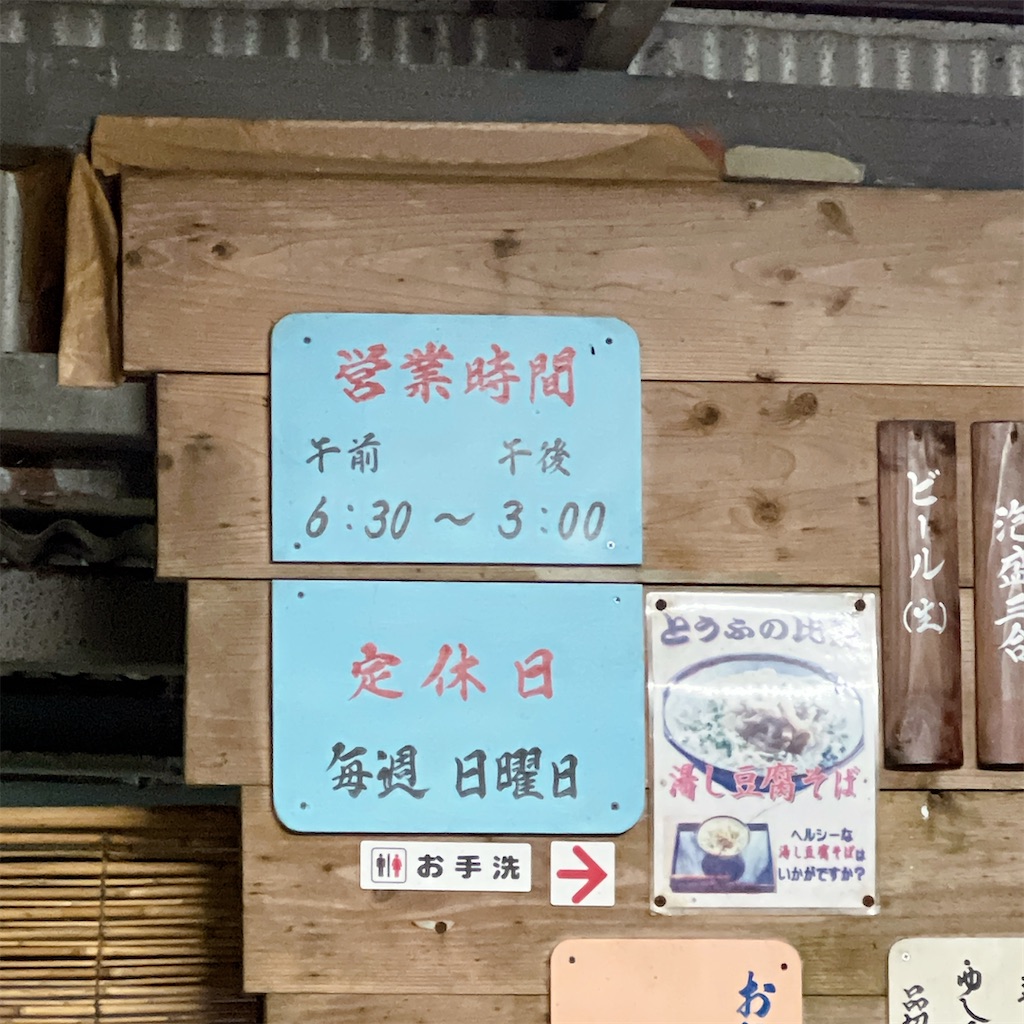 営業時間
午前 午後
6:30 ～ 3:00
定休日
毎週 日曜日
お手洗
とうふの比
湯し豆腐そば
ヘルシーな
湯し豆腐そばは
いかがですか?
ビール(生)
泡盛三合
お
ゆし
品切